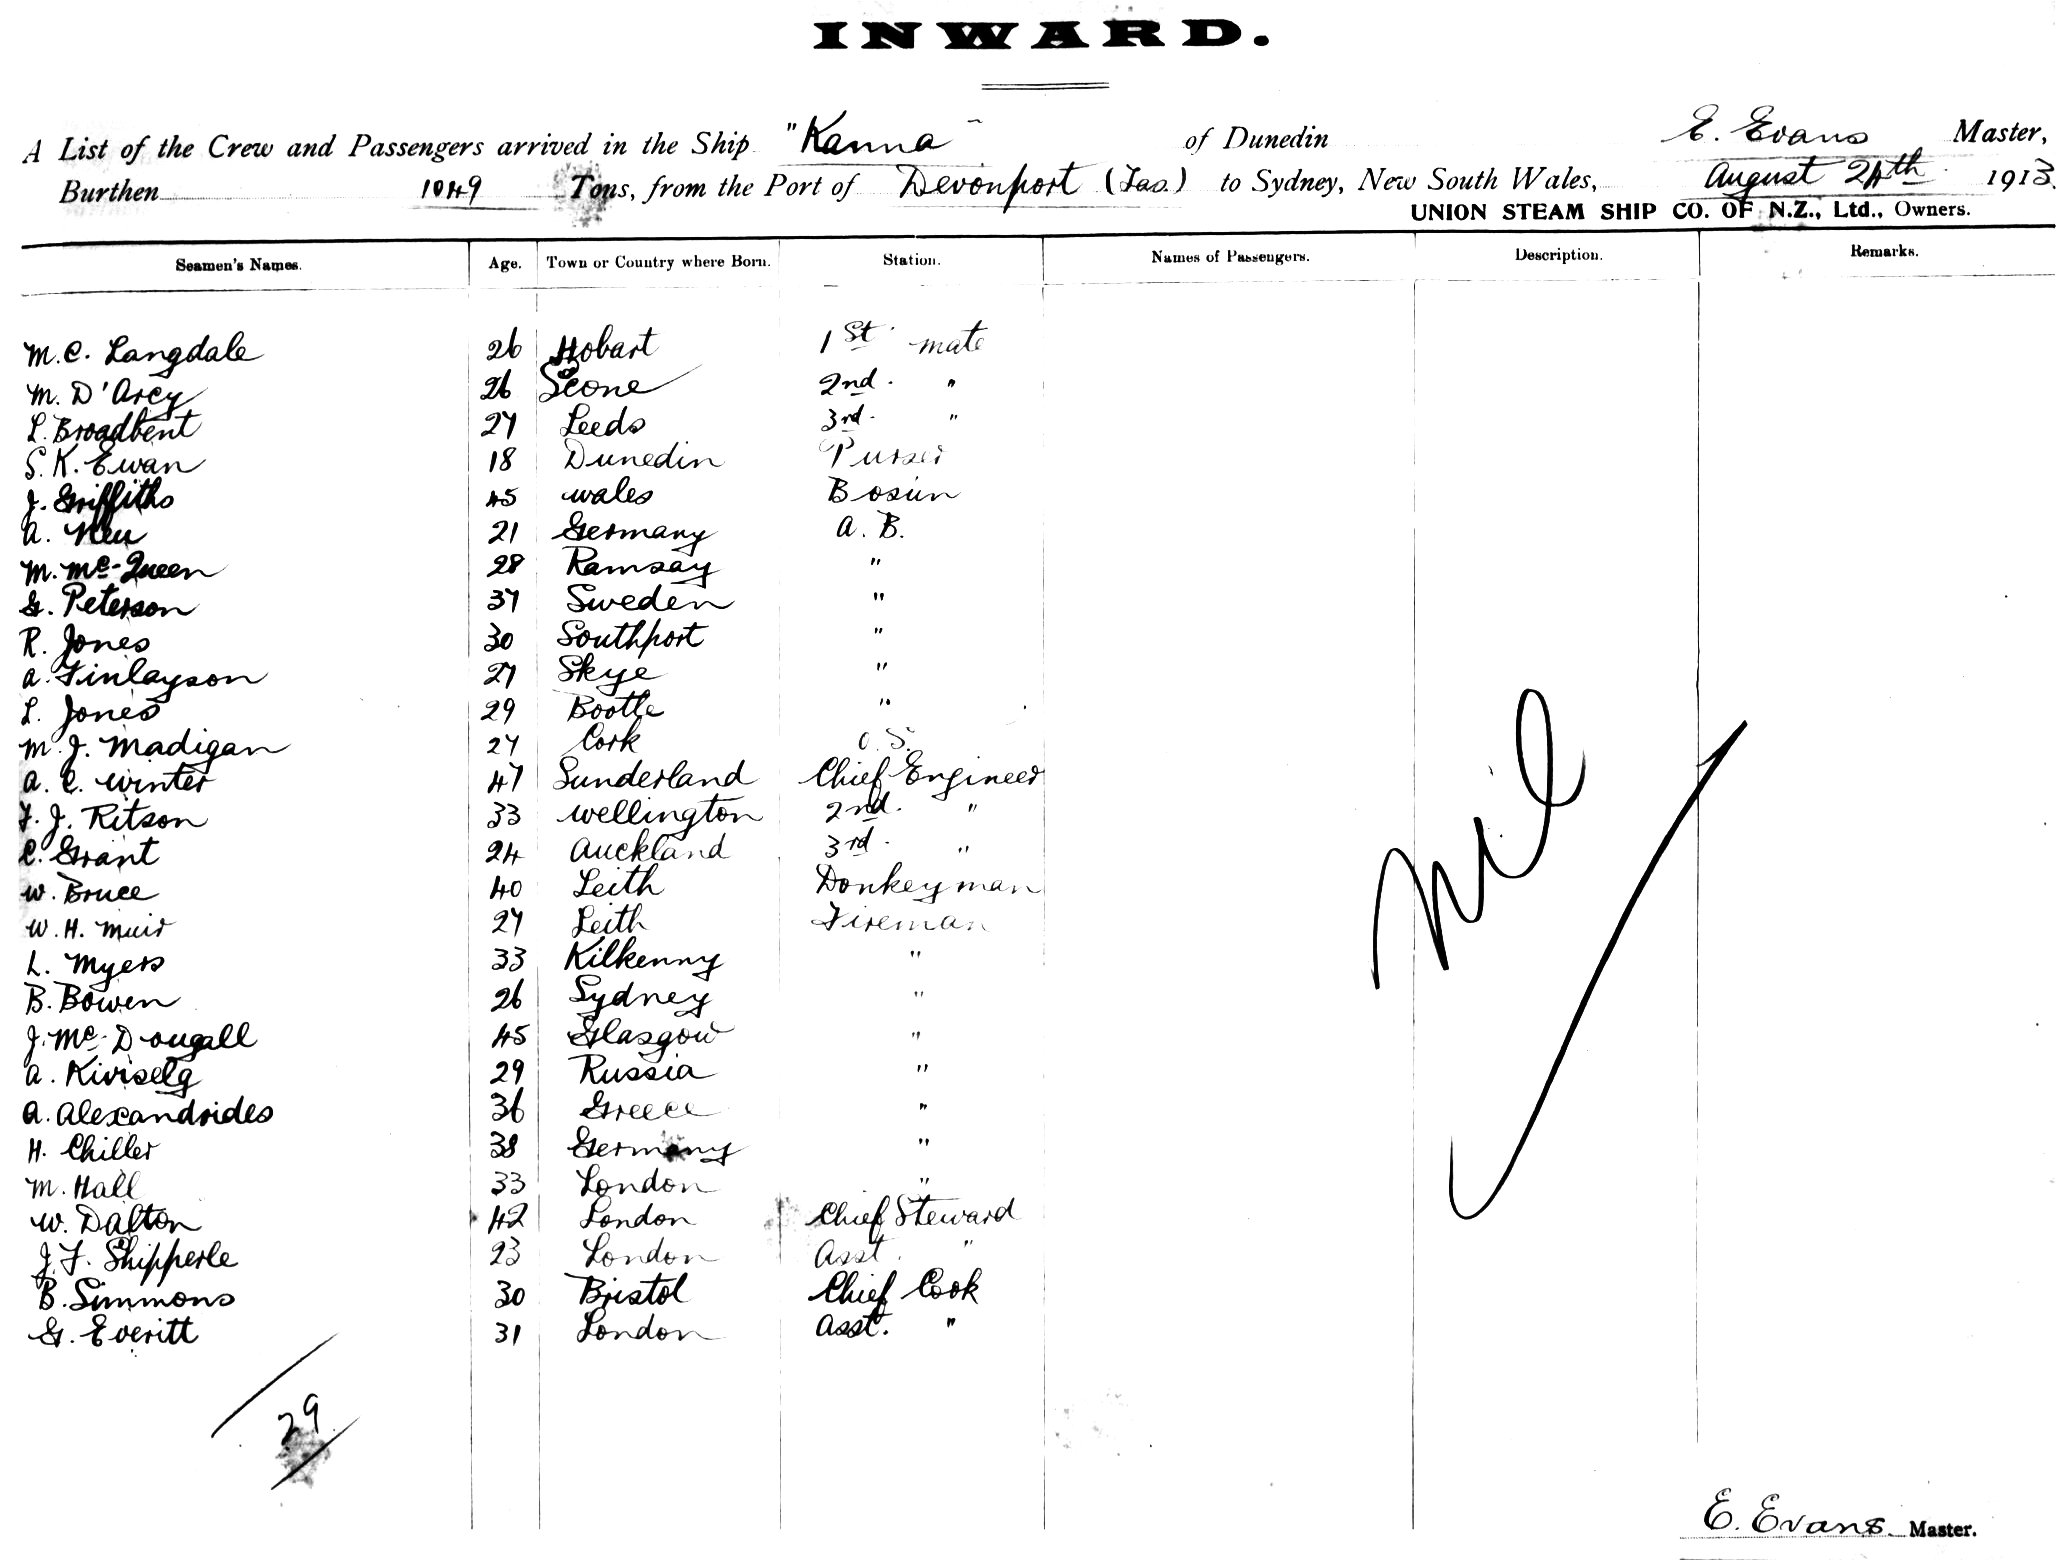 INWARD.
A List of the Crew and Passengers arrived in the Ship "Kanna" of Dunedin E. Evans Master,
Burthen 1049 Tons, from the Port of Devonport (Tas.) to Sydney, New South Wales, August 24th 1913.
UNION STEAM SHIP CO. OF N.Z., Ltd., Owners.
Seamen's Names. Age. Town or Country where Born. Station. Names of Passengers. Description. Remarks.
M. C. Langdale 26 Hobart 1st mate
M. D'Arcy 26 Scone 2nd. "
L. Broadbent 27 Leeds 3rd. "
S. K. Ewan 18 Dunedin Purser
J. Griffiths 45 Wales Bosun
A. Neu 21 Germany A. B.
M. Mc-Queen 28 Ramsay "
G. Peterson 37 Sweden "
R. Jones 30 Southport "
A. Finlayson 27 Skye "
L. Jones 29 Bootle "
M. J. Madigan 27 Cork O. S.
A. C. Winter 47 Sunderland Chief Engineer
F. J. Ritson 33 Wellington 2nd. "
C. Grant 24 Auckland 3rd. "
W. Bruce 40 Leith Donkeyman
W. H. Muir 27 Leith Fireman
L. Myers 33 Kilkenny "
B. Bowen 26 Sydney "
J. Mc. Dougall 45 Glasgow "
A. Kiviselg 29 Russia "
A. Alexandrides 36 Greece "
H. Chiller 38 Germany "
M. Hall 33 London "
W. Dalton 42 London Chief Steward
J. F. Shipperle 23 London Asst. "
B. Simmons 30 Bristol Chief Cook
G. Everitt 31 London Asst. "
Nil
29
E. Evans. Master.